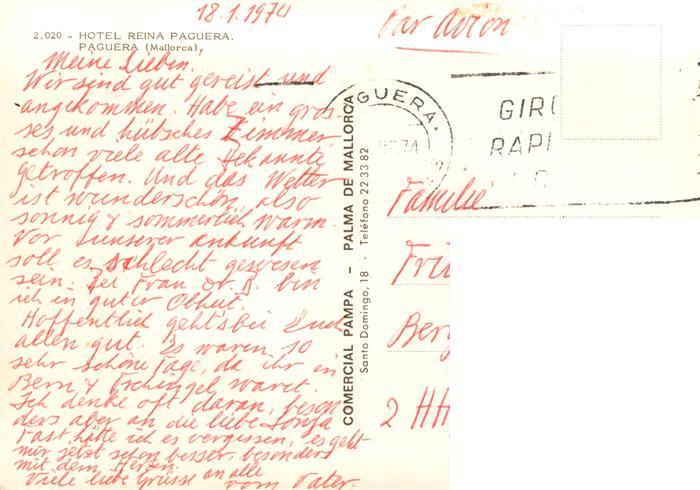 18.1.1974
Par Avion
2.020 - HOTEL REINA PAGUERA.
PAGUERA (Mallorca)
Meine Lieben,
Wir sind gut gereist und
angekommen. Habe ein gros-
ses und hübsches Zimmer
schon viele alte Bekannte
getroffen. Und das Wetter
ist wunderschön, also
sonnig & sommerlich warm.
Vor unserer Ankunft
soll es schlecht gewesen
sein. Bei Frau Dr. B. bin
ich in guter Obhut.
Hoffentlich geht's bei Euch
allen gut. Es waren 10
sehr schöne Tage, da ihr in
Bern & Tschingel waret.
Ich denke oft daran, beson
ders aber an die liebe Sonja
Fast hätte ich es vergessen, es geht
mir jetzt schon besser, besonders
mit dem Herzen.
Viele liebe Grüsse an alle
vom Vater.
COMERCIAL PAMPA - PALMA DE MALLORCA
Santo Domingo, 18 - Teléfono 22 33 82
GUERA.
74
GIRO
RAPI
Familie
Fri
Ber
2 HH